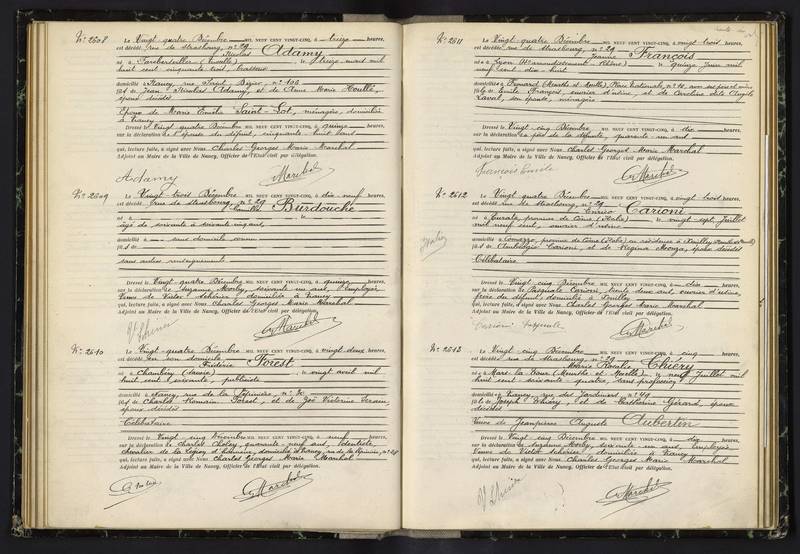 N° 2608
Le Vingt quatre Décembre MIL NEUF CENT VINGT-CINQ, à treize heures,
est décédé rue de Strasbourg, n° 29
Nicolas Adamy
né à (Moselle), le treize mars mil
huit cent cinquante trois, brasseur
domicilié à Nancy, rue Saint Dizier, n° 106
fils de Jean Nicolas Adamy, et de Anne Marie
époux décédés
Epoux de Marie Emélie Saint-Lot, ménagère, domiciliée
à Nancy
Dressé le Vingt quatre Décembre MIL NEUF CENT VINGT-CINQ, à quinze heures,
sur la déclaration de l'épouse du défunt, cinquante huit ans
qui, lecture faite, a signé avec Nous, Charles Georges Marie Marchal
Adjoint au Maire de la Ville de Nancy, Officier de l'Etat civil par délégation.
Adamy Marchal
N° 2609
Le Vingt trois Décembre MIL NEUF CENT VINGT-CINQ, à dix neuf heures,
est décédé rue de Strasbourg, n° 29
Camille Burdouche
né à le
âgé de soixante à soixante cinq ans,
domicilié à sans domicile connu
fils de
sans autres renseignements
Dressé le Vingt quatre Décembre MIL NEUF CENT VINGT-CINQ, à quinze heures,
sur la déclaration de Suzanne Morby, soixante un ans, employée
Veuve de Victor Schérier, domiciliée à Nancy
qui, lecture faite, a signé avec Nous, Charles Georges Marie Marchal
Adjoint au Maire de la Ville de Nancy, Officier de l'Etat civil par délégation.
Marchal
N° 2610
Le Vingt-quatre Décembre MIL NEUF CENT VINGT-CINQ, à vingt deux heures,
est décédé en son domicile
Frédéric Forest
né à Chambéry (Savoie), le vingt avril mil
huit cent soixante, publiciste
domicilié à Nancy, rue de la Pépinière, n° 30
fils de Charles Romain Forest, et de Victorine
époux décédés
Célibataire
Dressé le Vingt cinq Décembre MIL NEUF CENT VINGT-CINQ, à neuf heures,
sur la déclaration de Charles soixante neuf ans, dentiste
Chevalier de la Légion d'honneur, domicilié à Nancy, rue de la Pépinière, n° 28
qui, lecture faite, a signé avec Nous, Charles Georges Marie Marchal
Adjoint au Maire de la Ville de Nancy, Officier de l'Etat civil par délégation.
Marchal
N° 2611
Le Vingt quatre Décembre MIL NEUF CENT VINGT-CINQ, à vingt trois heures,
est décédée rue de Strasbourg, n° 29
Jeanne François
née à Lyon (Rhône), le quinze Juin mil
neuf cent dix huit
domiciliée à Frouard (Meurthe et Moselle), Place Nationale, n° 10, avec ses père et mère
fille de Emile François, ouvrier d'usine, et de Caroline
son épouse, ménagère
Dressé le Vingt cinq Décembre MIL NEUF CENT VINGT-CINQ, à dix heures,
sur la déclaration du père de la défunte, quarante un ans
qui, lecture faite, a signé avec Nous, Charles Georges Marie Marchal
Adjoint au Maire de la Ville de Nancy, Officier de l'Etat civil par délégation.
François Emile Marchal
N° 2612
Italien
Le Vingt quatre Décembre MIL NEUF CENT VINGT-CINQ, à vingt trois heures,
est décédé rue de Strasbourg, n° 29
Enrico Carioni
né à province de Côme (Italie), le vingt-sept Juillet
mil neuf cent, ouvrier d'usine
domicilié à province de Côme (Italie) en résidence à Pompey
fils de Ambrogio Carioni, et de Regina Monza, époux décédés
Célibataire
Dressé le Vingt cinq Décembre MIL NEUF CENT VINGT-CINQ, à dix heures,
sur la déclaration de Pasquale Carioni, trente deux ans, ouvrier d'usine,
frère du défunt, domicilié à
qui, lecture faite, a signé avec Nous, Charles Georges Marie Marchal
Adjoint au Maire de la Ville de Nancy, Officier de l'Etat civil par délégation.
Carioni Pasquale Marchal
N° 2613
Le Vingt cinq Décembre MIL NEUF CENT VINGT-CINQ, à cinq heures,
est décédée rue de Strasbourg, n° 29
Marie Rosalie Thiéry
née à Mars la Tour (Meurthe et Moselle), le neuf Juillet mil
huit cent soixante-quatre, sans profession
domiciliée à Nancy, rue des Jardiniers, n° 49
fille de Joseph Thiéry, et de Catherine Gérard, époux
décédés
Veuve de Jeanpierre Auguste Aubertin
Dressé le Vingt cinq Décembre MIL NEUF CENT VINGT-CINQ, à dix heures,
sur la déclaration de Suzanne Morby, soixante un ans, employée
Veuve de Victor Schérier, domiciliée à Nancy
qui, lecture faite, a signé avec Nous, Charles Georges Marie Marchal
Adjoint au Maire de la Ville de Nancy, Officier de l'Etat civil par délégation.
Marchal